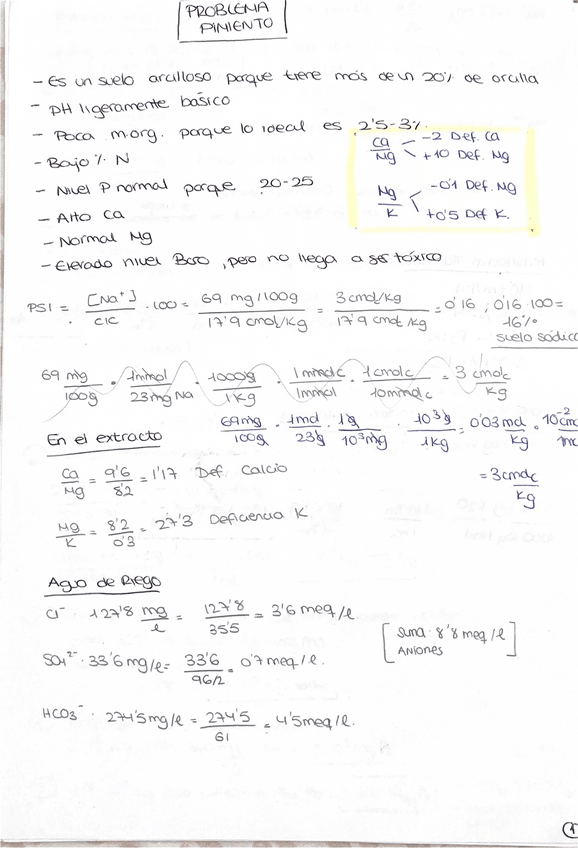 PROBLEMA
PIMIENTO
- Es un suelo arcilloso porque tiene más de un 20% de arcilla
- pH ligeramente básico
- Poca m.org. porque lo ideal es 2'5-3%.
- Bajo % N
- Nivel P normal porque 20-25
- Alto Ca
- Normal Mg
- Elevado nivel Boro, pero no llega a ser tóxico
Ca/Mg < -2 Def. Ca
+10 Def. Mg
Mg/K < -0'1 Def. Mg
+0'5 Def K.
PSI = [Na+]/CIC · 100 = 69 mg/100g / 17'9 cmol/Kg = 3 cmol/Kg / 17'9 cmol/Kg = 0'16 ; 0'16·100 =
16%
suelo sódico
69 mg/100g · 1mmol/23mg Na · 1000g/1Kg · 1mmolc/1mmol · 1cmolc/10mmolc = 3 cmolc/Kg
69mg/100g · 1mol/23g · 1g/10³mg · 10³g/1Kg = 0'03 mol/Kg = 10-2
= 3cmolc/Kg
En el extracto
Ca/Mg = 9'6/8'2 = 1'17 Def. Calcio
Mg/K = 8'2/0'3 = 27'3 Deficiencia K
Agua de Riego
Cl- · 127'8 mg/l = 127'8/35'5 = 3'6 meq/l
[suma: 8'8 meq/l
ANIONES]
SO4 2- · 33'6 mg/l = 33'6/96/2 = 0'7 meq/l.
HCO3- · 274'5 mg/l = 274'5/61 = 4'5 meq/l.
1